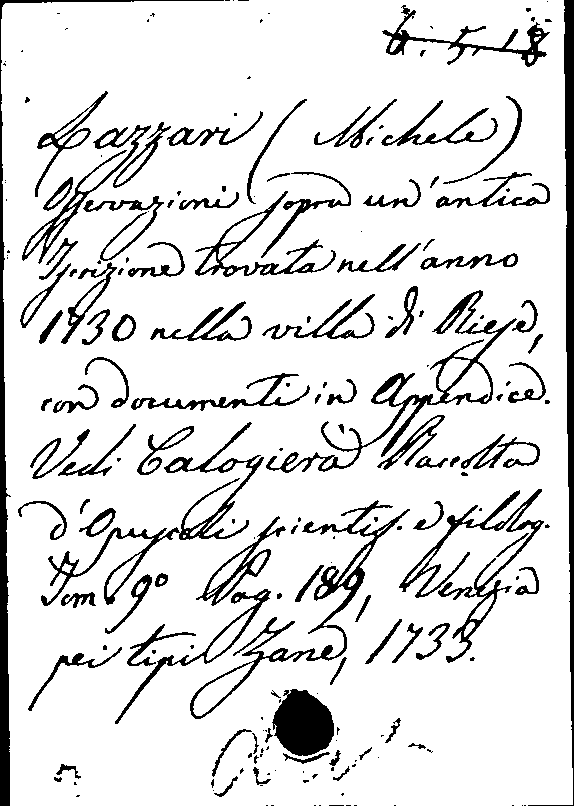 6. 5. 18
Lazzari (Michele)
Osservazioni sopra un'antica
Iscrizione trovata nell'anno
1730 nella villa di Riese,
con documenti in Appendice.
Vedi Calogierà Raccolta
d'Opuscoli scientif. e filolog.
Tom. 9º Pag. 189, Venezia
pei tipi Zane, 1733.